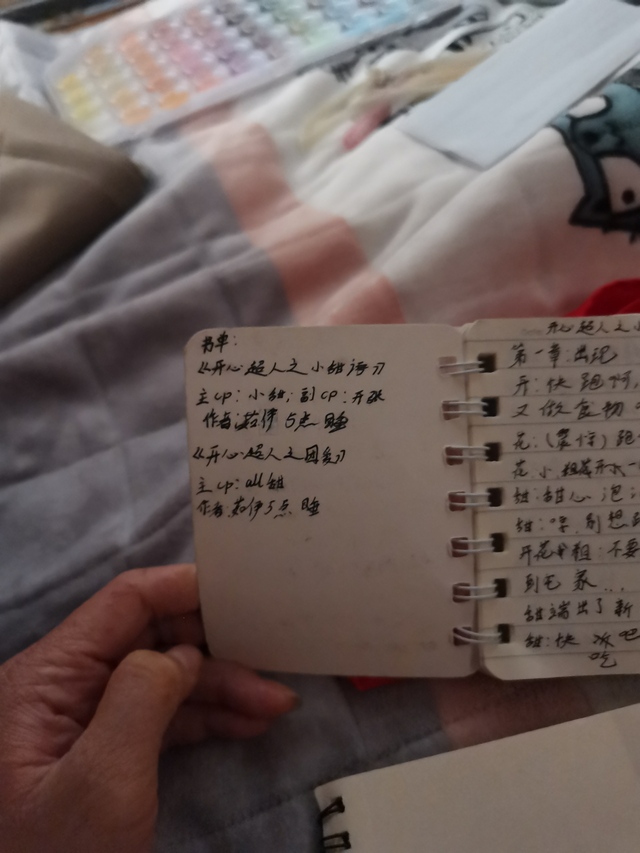 书单:
《开心超人之小甜诗》
主cp:小甜;副cp:开
作者:茹伊5点睡
《开心超人之团宠》
主cp:all甜
作者:茹伊5点睡
开心超人之小
第一章:出现
开:快跑啊
又做食物
花:(震惊)跑
花
甜:甜心泡:
甜:哼,别想
开花 粗:不要
到宅家...
甜端出了新
甜:快 吧
吃